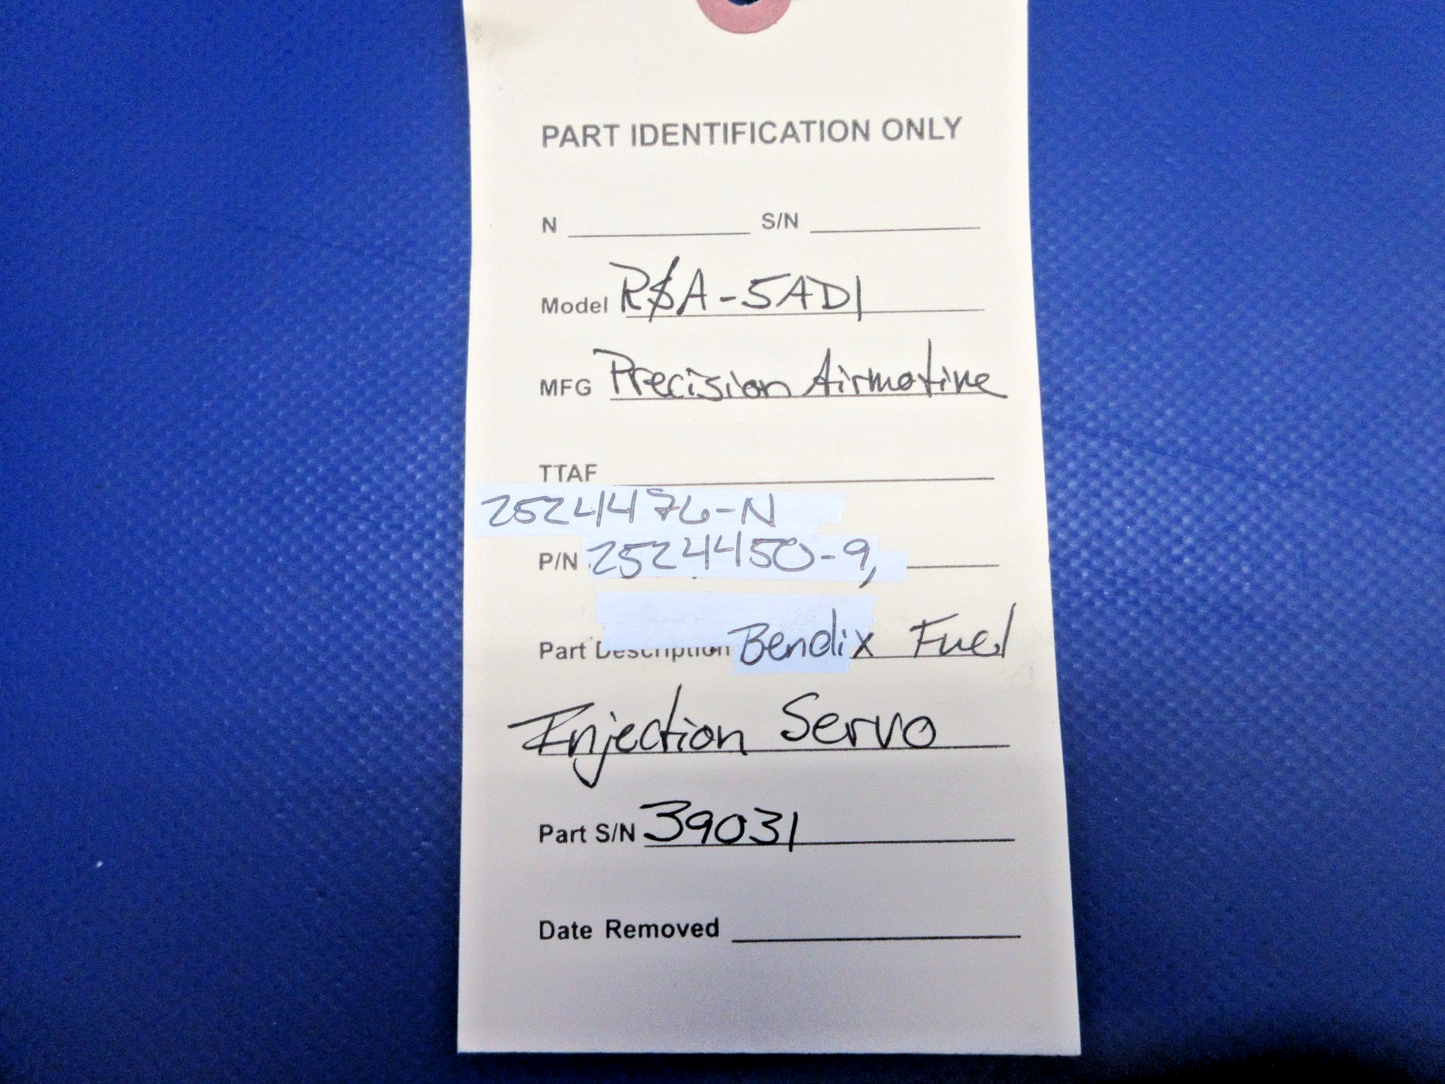 PART IDENTIFICATION ONLY
N S/N
Model RSA-5AD1
MFG Precision Airmotive
TTAF
2524476-N
P/N 2524450-9,
Part Description Bendix Fuel
Injection Servo
Part S/N 39031
Date Removed